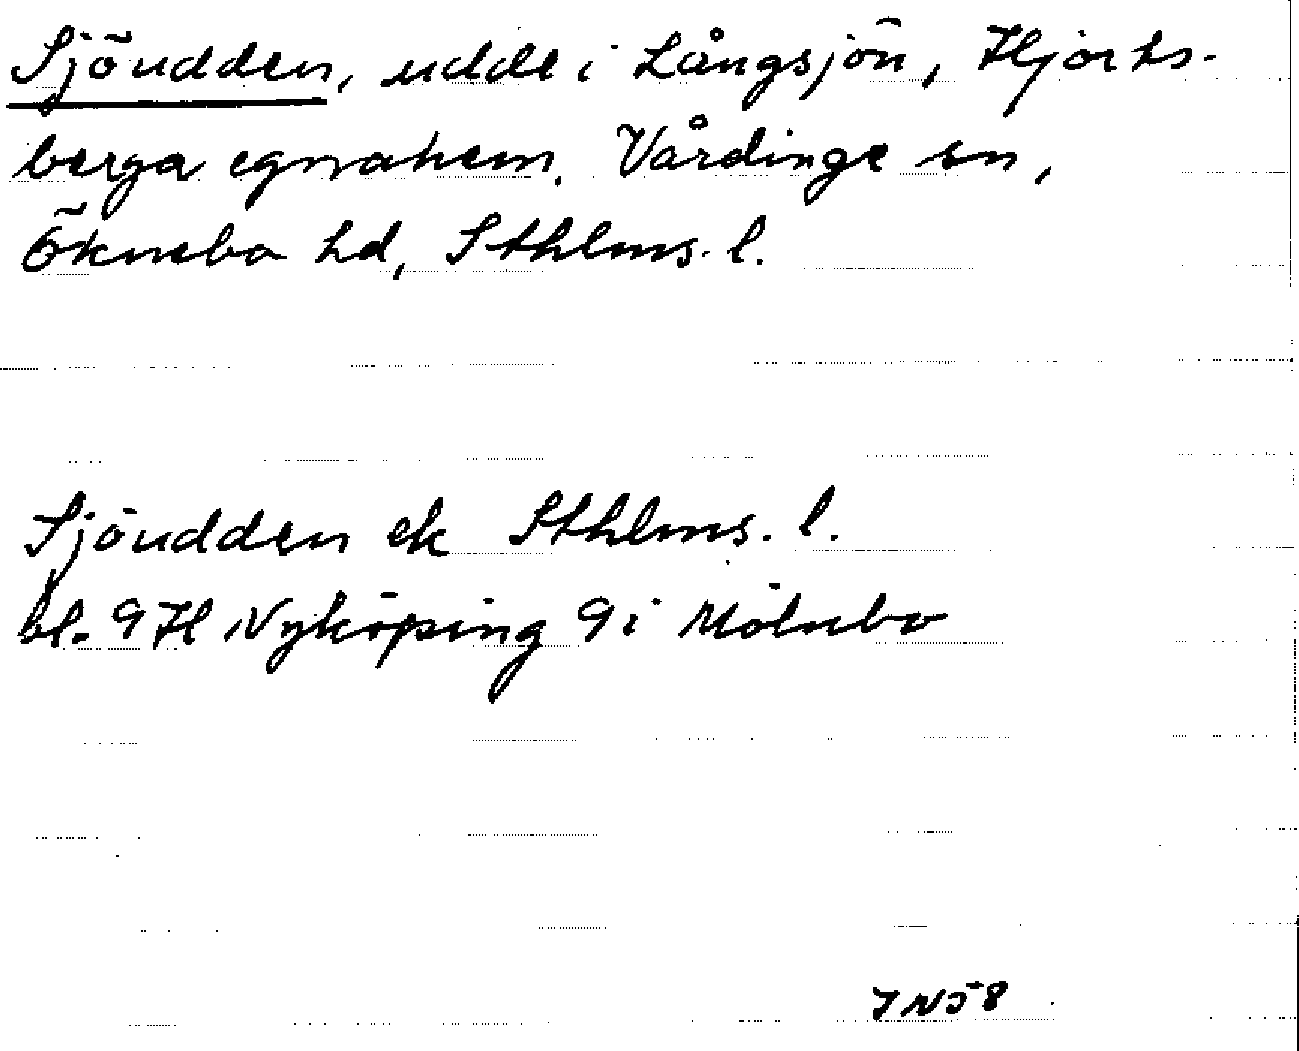 Sjöudden, udde i Långsjön, Hjorts-
berga egnahem. Vårdinge sn,
Öknebo hd, Sthlms. l.
Sjöudden ek Sthlms. l.
bl. 9H Nyköping 9i Mölnbo
JN58